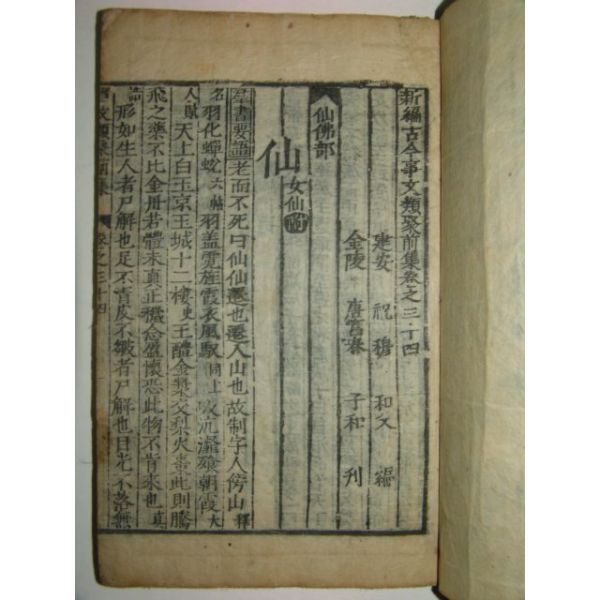 新編古今事文類聚前集卷之三十四
建安 祝穆 和父 編
金陵 唐富春 子和 刊
仙佛部
仙 女仙附
羣書要語老而不死曰仙仙遷也遷入山也故制字人傍山釋
名羽化蟬蛻六帖羽盖霓旌霞衣風馭同上吸沆瀣飧朝霞大
人賦天上白玉京玉城十二樓史玉醴金漿交梨火棗此則騰
飛之藥不比金丹若體未真正穢念盈懷恐此物不肯來也真
誥形如生人者尸解也足不青皮不皺者尸解也目光不落無
事文類聚前集 卷之三十四